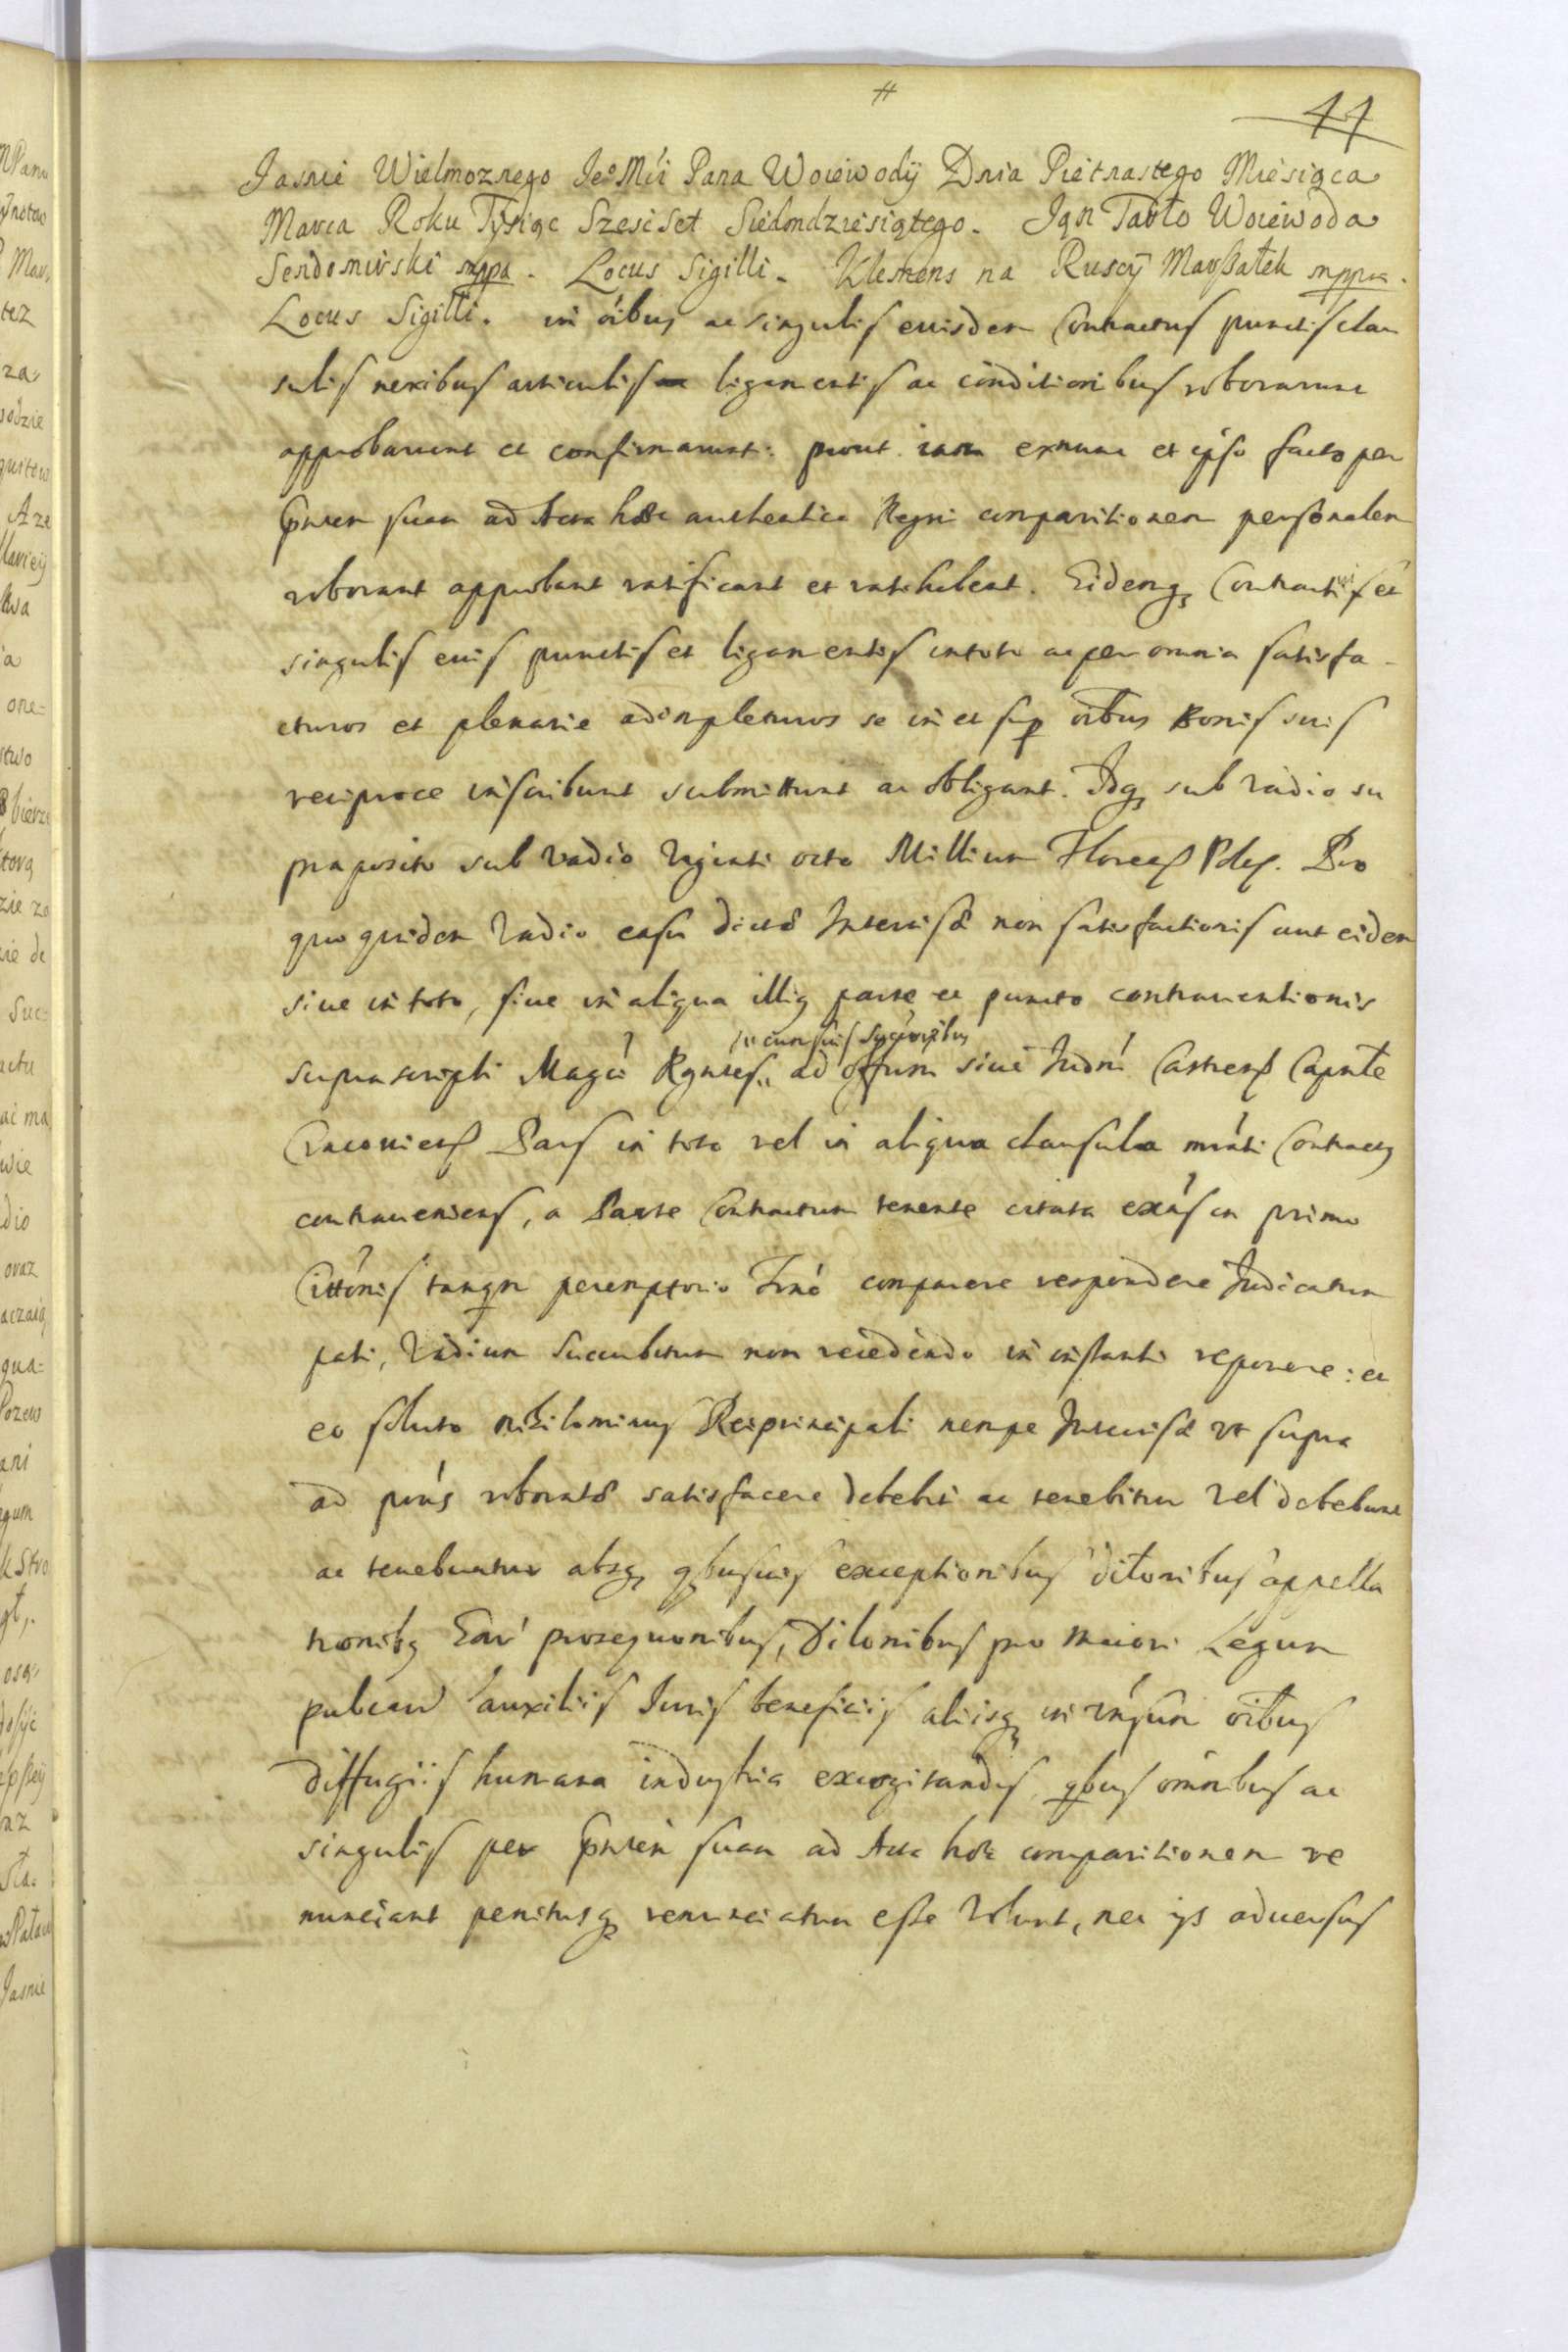 #
44
Jasnie Wielmoznego JeoMci Pana Woiewody Dnia Pietnastego Miesiąca
Marca Roku Tysiąc Szescset Siedmdziesiątego. Jan Tarło Woiewoda
Sendomirski mppa. Locus Sigilli. Klemens na Ruscy Marszałek mppa.
Locus Sigilli. in oibus ac singulis eiusdem Contractus punctis clau
sulis nexibus articulis ligamentis ac conditionibus roborarunt
approbarunt et confirmarunt: prout exnunc et ipso facto per
pntem suam ad Acta haec authentica Regni comparitionem personalem
roborant approbant ratificant et ratihabent. Eidemq Contractui et
singulis eius punctis et ligamentis intoto ac per omnia satisfa-
cturos et plenarie adimpleturos se in et sup oibus Bonis suis
reciproce inscribunt submittunt ac obligant. Idq sub vadio su
praposito sub vadio viginti octo Millium Florens Pols. Pro
quo quidem vadio casu dictae Intercisae non satisfactionis aut eidem
siue in toto, siue in aliqua illius parte et puncto contrauentionis
se cum suis Sucribus
suprascripti Magci Rgntes ad offum siue Judm Castrens Capnle
Cracouiens Pars in toto vel in aliqua clausula mnti Contractus
contraueniens, a Parte Contractum tenente citata exns in primo
Cittonis tanqm peremptorio Trno comparere respondere Judicatum
pati, Vadium succubitum non recedendo in instanti reponere: et
eo soluto nihilominus Rei principali nempe Intercisae vt supra
ad prns roboratae satisfacere debebit ac tenebitur vel debebunt
ac tenebuntur absq qbusuis exceptionibus dilonibus appella
tionibq Earu prosequonibus, Dilonibus pro maiori Legum
publcaru auxiliis Juris beneficiis aliisq in vnsum oibus
diffugiis humana industria excogitandis, qbus omnibus ac
singulis per pntem suam ad Acta haec comparitionem re
nunciant penitusq renunciatum esse Volunt, nec ijs aduersus